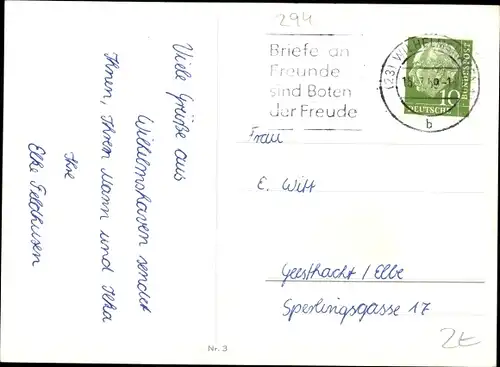 294
Briefe an
Freunde
sind Boten
der Freude
(23) WILHELMS
b
10
DEUTSCHE
BUNDESPOST
Viele Grüße aus
Wilhelmshaven sendet
Ihnen, Ihrem Mann und Ilka
Ihre
Elke Feldhusen
Frau
E. Witt
Geesthacht / Elbe
Sperlingsgasse 17
Nr. 3